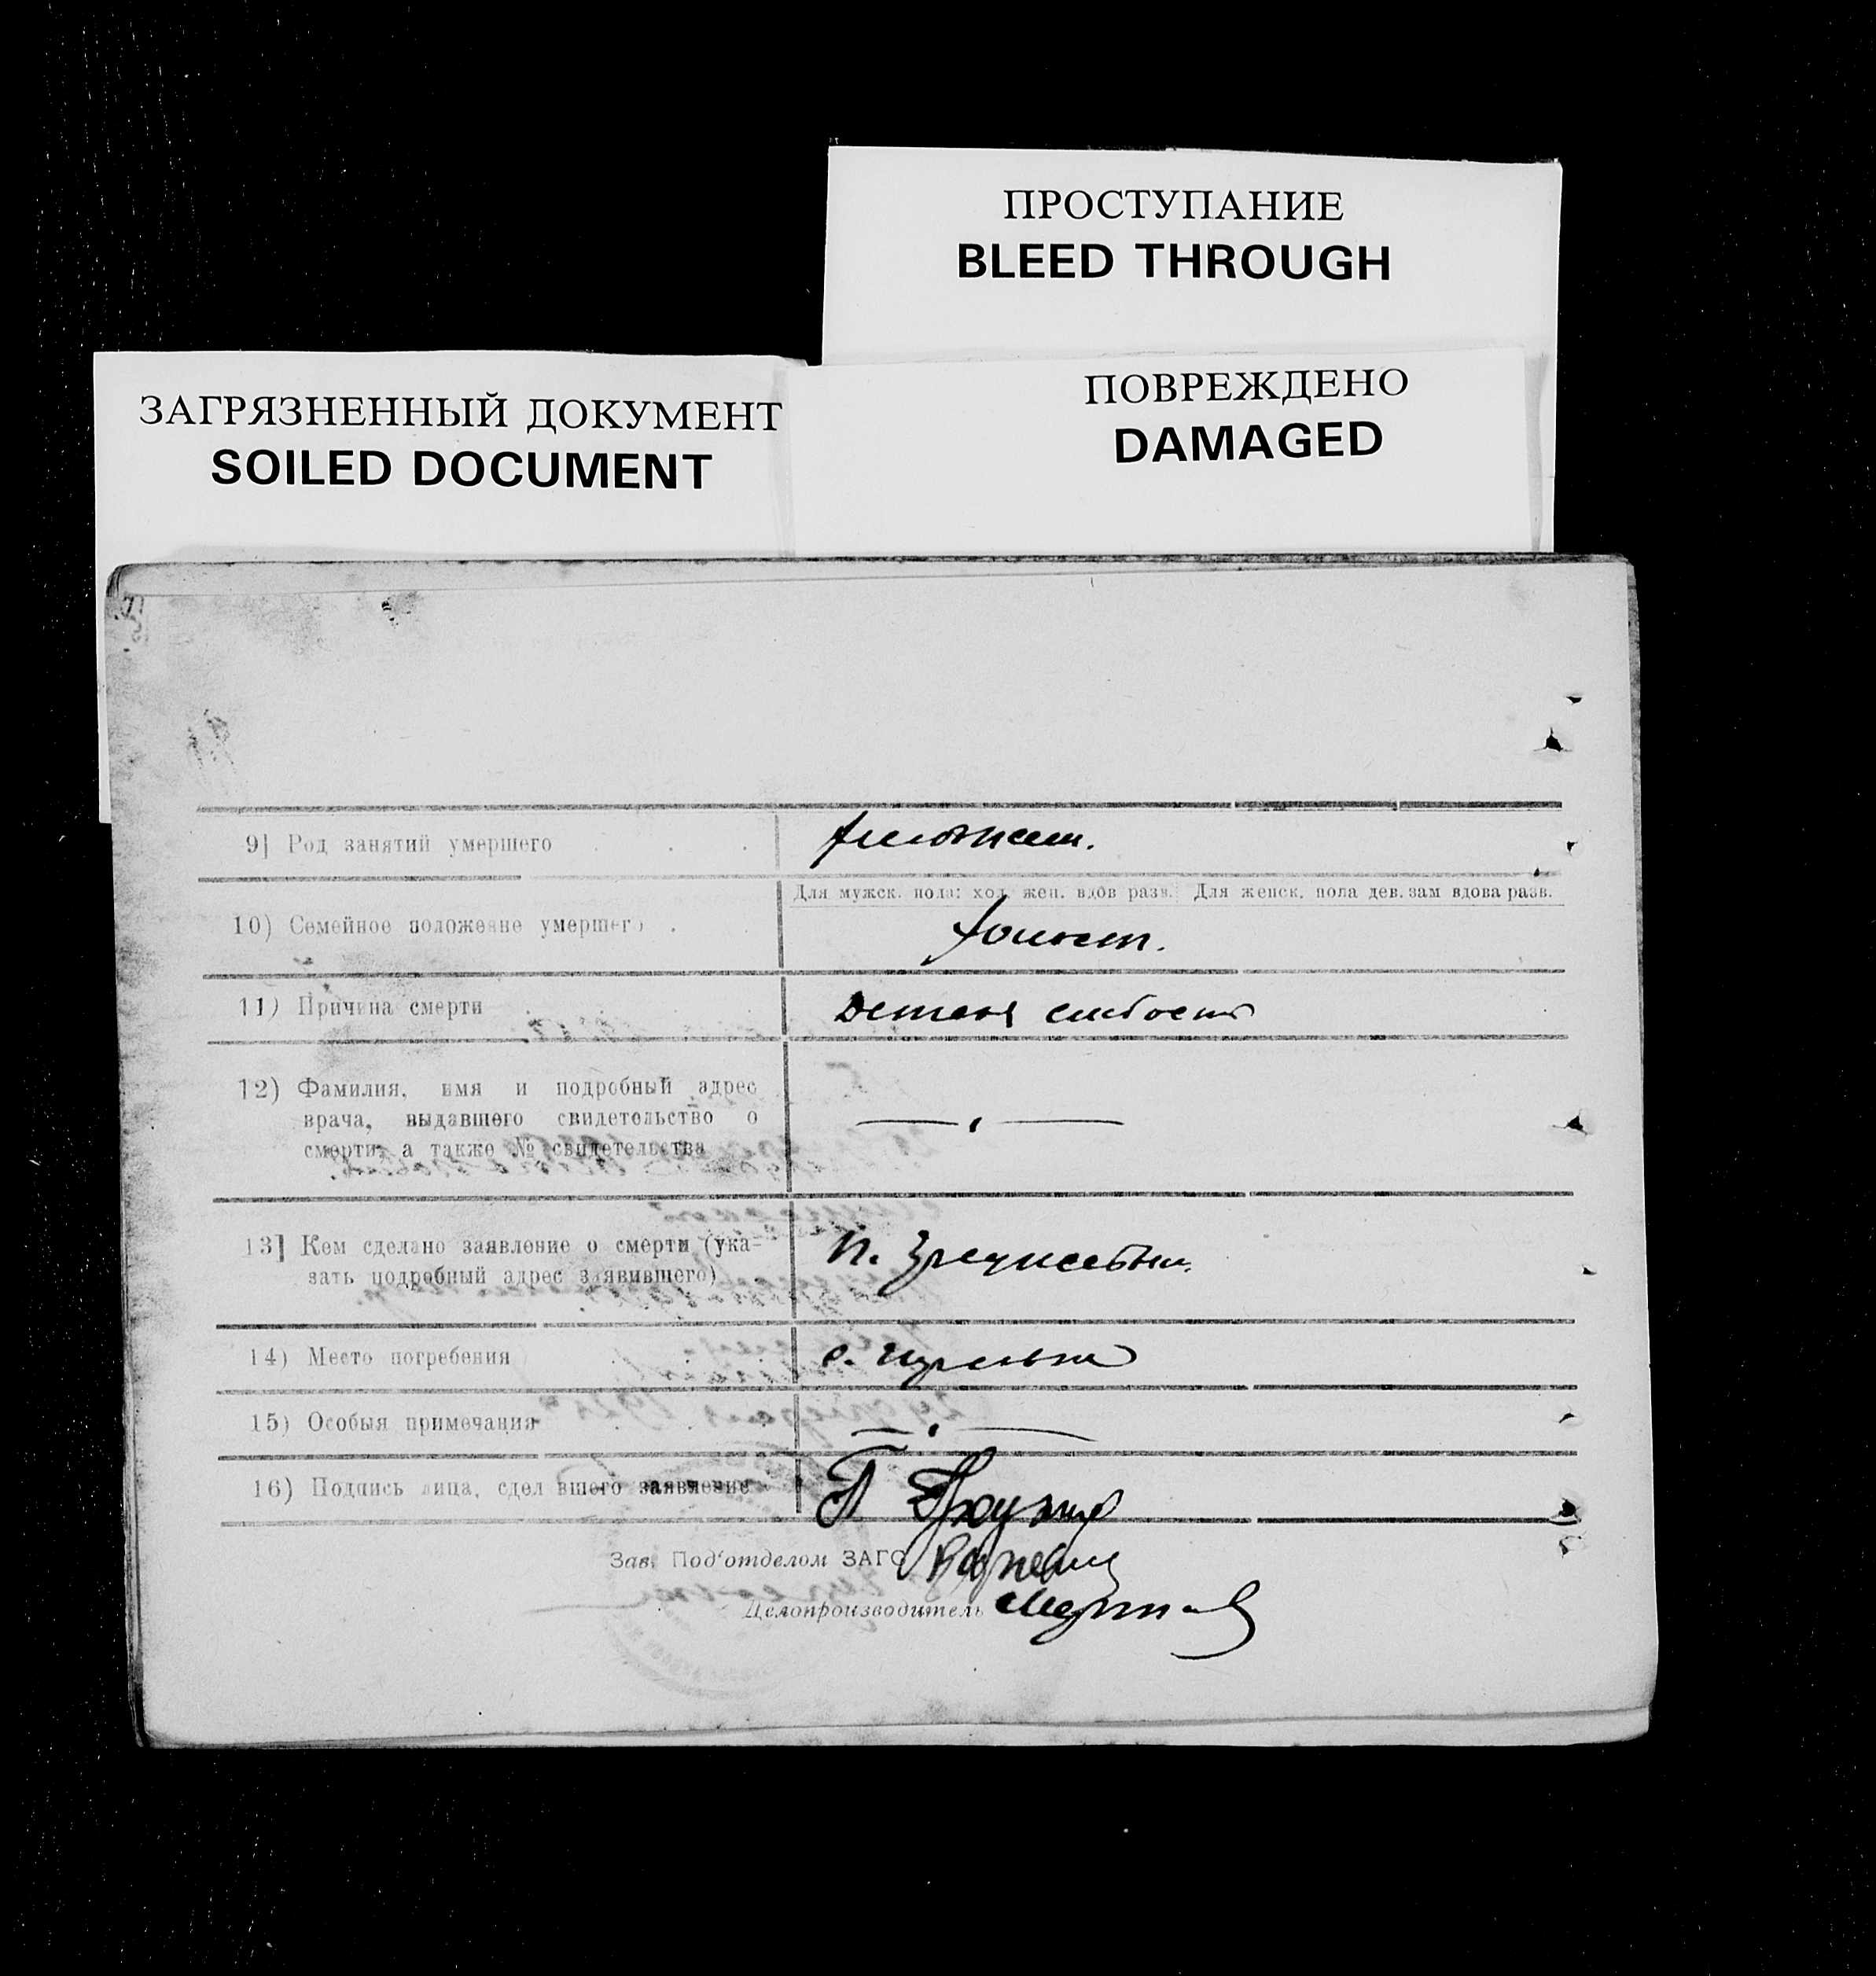 ПРОСТУПАНИЕ
BLEED THROUGH
ЗАГРЯЗНЕННЫЙ ДОКУМЕНТ
SOILED DOCUMENT
ПОВРЕЖДЕНО
DAMAGED
9] Род занятий умершего
Для мужск. пола: хол. жен. вдов разв. Для женск. пола дев. зам вдова разв.
10) Семейное положение умершего
холост.
11) Причина смерти
Детская слабость
12) Фамилия, имя и подробный адрес
врача, выдавшего свидетельство о
смерти, а также № свидетельства
13] Кем сделано заявление о смерти (ука-
зать подробный адрес заявившего)
14) Место погребения
с.
15) Особыя примечания
16) Подпись лица, сделавшего заявление
Зав. Под'отделом ЗАГС
Делопроизводитель